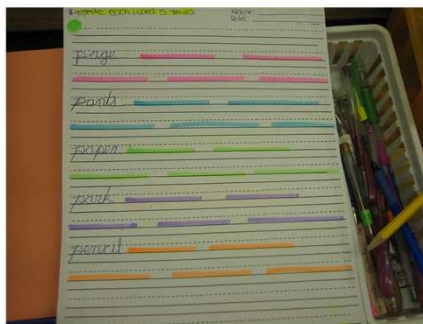 write each word 5 times Name:
Date:
page
pants
paper
park
pencil